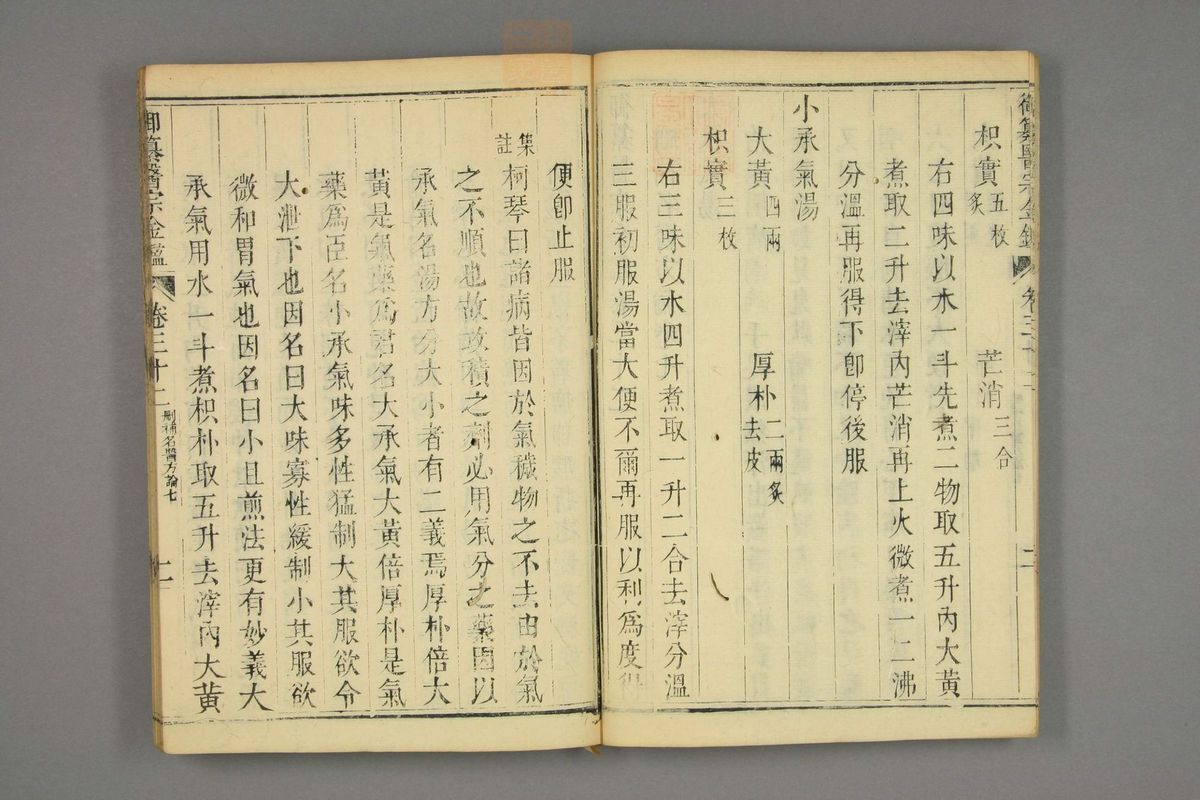 御纂醫宗金鑑 卷三十二 二
枳實五枚炙 芒消三合
右四味以水一斗先煮二物取五升內大黃
煮取二升去滓內芒消再上火微煮一二沸
分溫再服得下即停後服
小承氣湯
大黃四兩 厚朴二兩炙去皮
枳實三枚
右三味以水四升煮取一升二合去滓分溫
三服初服湯當大便不爾再服以利為度得
便即止服
集註柯琴曰諸病皆因於氣穢物之不去由於氣
之不順也故攻積之劑必用氣分之藥因以
承氣名湯方分大小者有二義焉厚朴倍大
黃是氣藥為君名大承氣大黃倍厚朴是氣
藥為臣名小承氣味多性猛制大其服欲令
大泄下也因名曰大味寡性緩制小其服欲
微和胃氣也因名曰小且煎法更有妙義大
承氣用水一斗煮枳朴取五升去滓內大黃
御纂醫宗金鑑 卷三十二 刪補名醫方論七 二